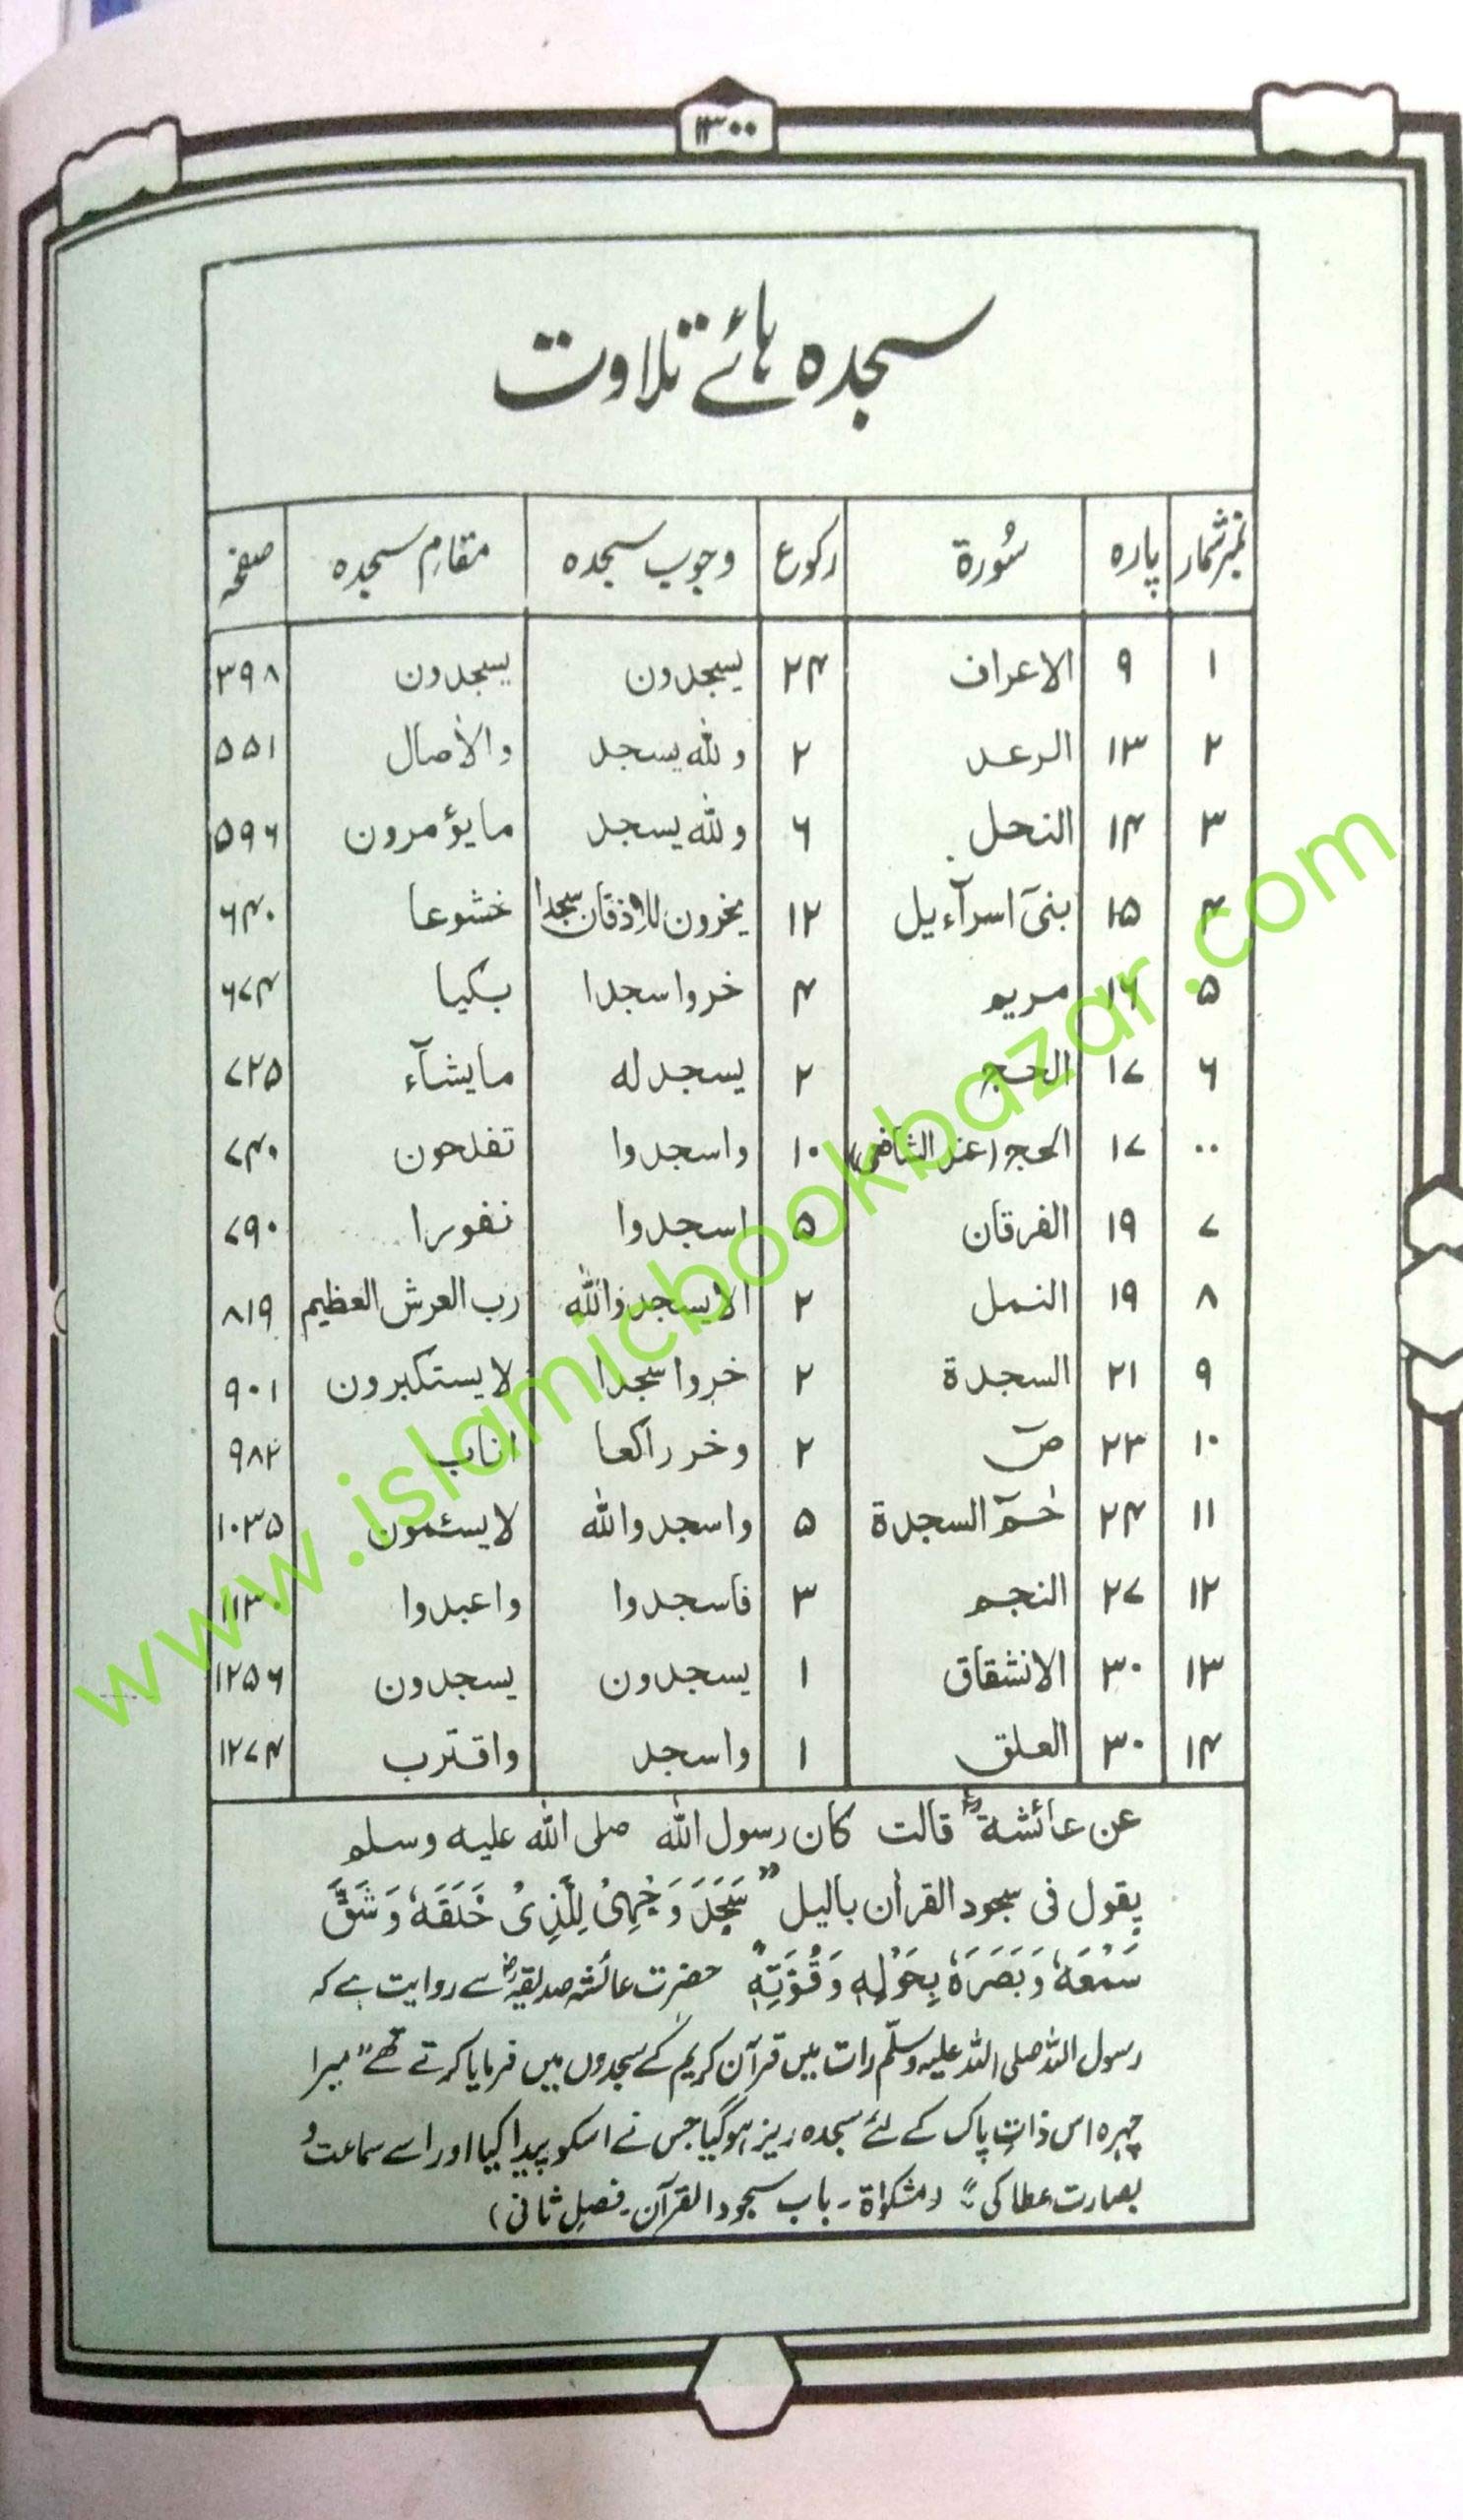 ۱۳۰۰
سجدہ ہائے تلاوت
نمبرشمار پارہ سُورۃ رکوع وجوب سجدہ مقامِ سجدہ صفحہ
۱ ۹ الاعراف ۲۴ یسجدون یسجدون ۳۹۸
۲ ۱۳ الرعد ۲ وللہ یسجد والاٰصال ۵۵۱
۳ ۱۴ النحل ۶ وللہ یسجد مایؤمرون ۵۹۶
۴ ۱۵ بنیٓ اسرآءیل ۱۲ یخرون للاذقان سجدا خشوعا ۶۴۰
۵ ۱۶ مریم ۴ خروا سجدا بکیا ۶۷۴
۶ ۱۷ الحج ۲ یسجد لہ مایشآء ۷۲۵
۰۰ ۱۷ الحج (عند الشافعی) ۱۰ واسجدوا تفلحون ۷۴۰
۷ ۱۹ الفرقان ۵ اسجدوا نفورا ۷۹۰
۸ ۱۹ النمل ۲ الایسجدواللہ رب العرش العظیم ۸۱۹
۹ ۲۱ السجدۃ ۲ خروا سجدا لایستکبرون ۹۰۱
۱۰ ۲۳ صٓ ۲ وخر راکعا اناب ۹۸۲
۱۱ ۲۴ حٰمٓ السجدۃ ۵ واسجدوا للہ لایسئمون ۱۰۳۵
۱۲ ۲۷ النجم ۳ فاسجدوا واعبدوا ۱۱۳۰
۱۳ ۳۰ الانشقاق ۱ یسجدون یسجدون ۱۲۵۶
۱۴ ۳۰ العلق ۱ واسجد واقترب ۱۲۷۴
عن عائشۃؓ قالت کان رسول اللہ صلی اللہ علیہ وسلم
یقول فی سجود القراٰن بالیل "سَجَدَ وَجْہِیْ لِلَّذِیْ خَلَقَہٗ وَشَقَّ
سَمْعَہٗ وَبَصَرَہٗ بِحَوْلِہٖ وَقُوَّتِہٖ" حضرت عائشہ صدیقہؓ سے روایت ہے کہ
رسول اللہ صلی اللہ علیہ وسلّم رات میں قرآن کریم کے سجدوں میں فرمایا کرتے تھے "میرا
چہرہ اس ذاتِ پاک کے لئے سجدہ ریز ہوگیا جس نے اسکو پیدا کیا اور اسے سماعت و
بصارت عطا کی" (مشکوٰۃ - باب سجود القرآن - فصل ثانی)
www.islamicbookbazar.com